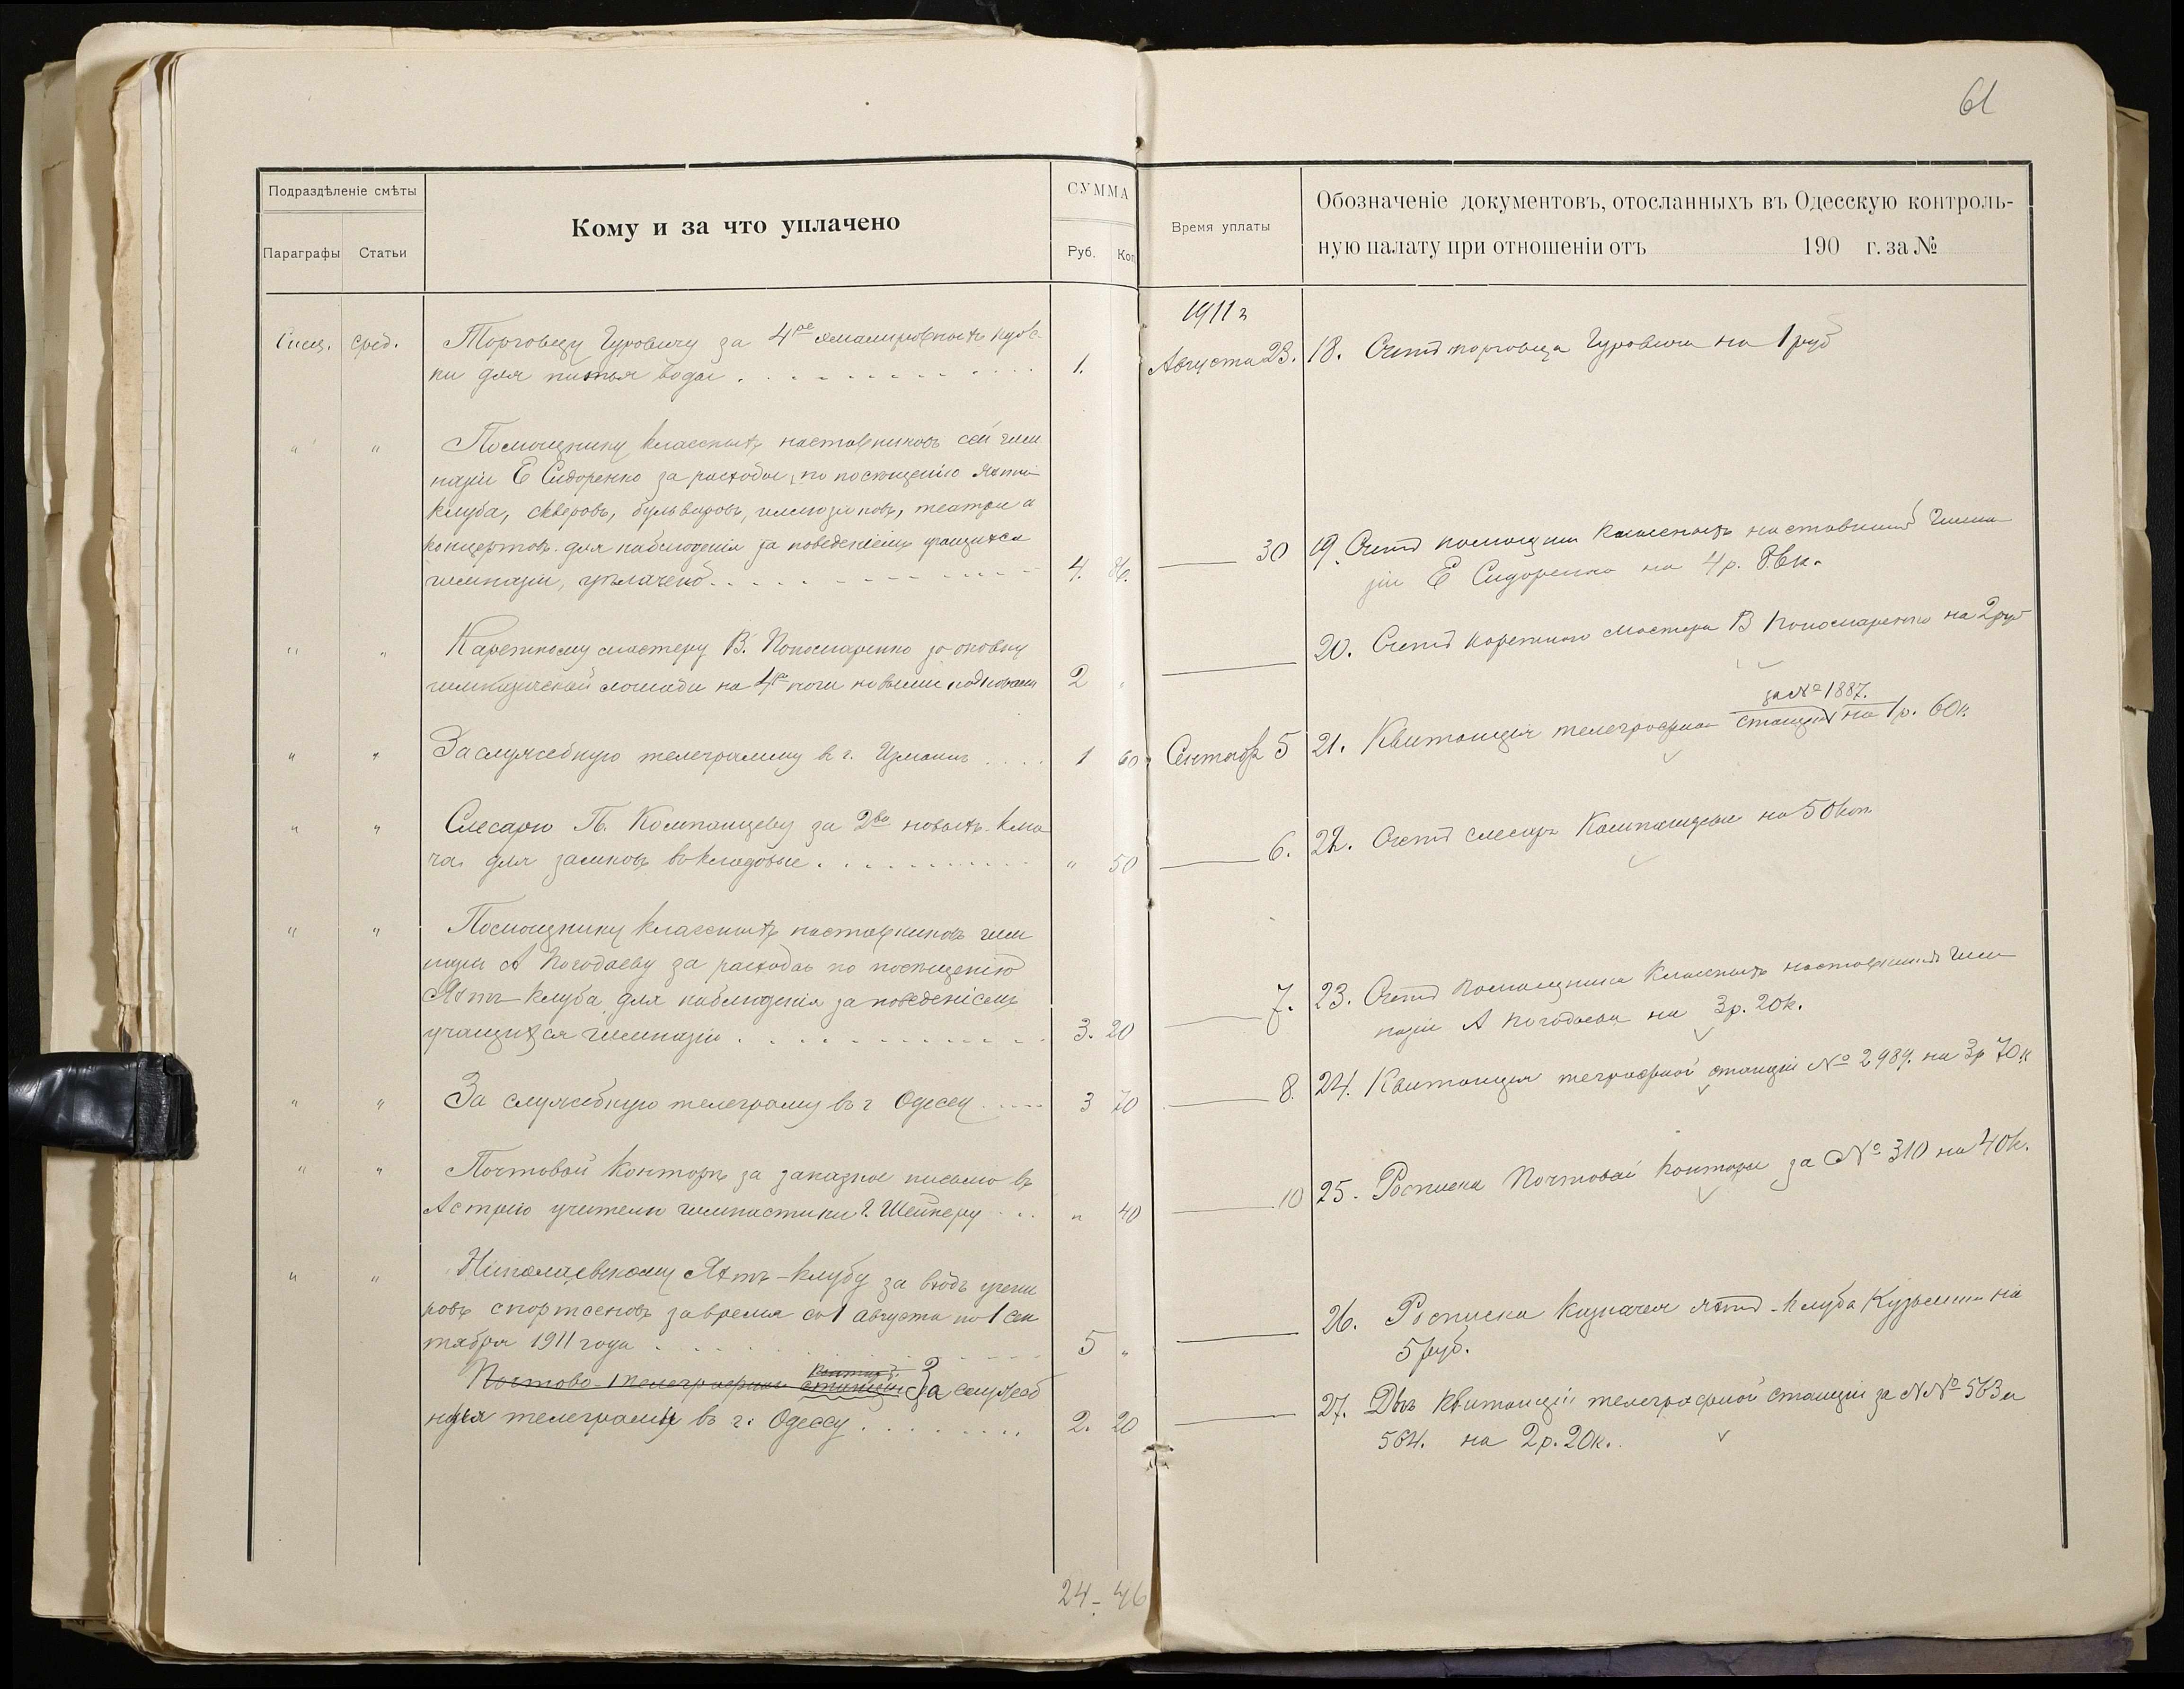 61
Подраздѣленіе смѣты
Параграфы Статьи
Кому и за что уплачено
СУММА
Руб. Коп.
Время уплаты
Обозначеніе документовъ, отосланныхъ въ Одесскую контроль-
ную палату при отношеніи отъ 190 г. за №
1911 г
Спец. сред. Торговцу Гуровичу за 4ре эмалированныхъ
ки для питья воды 1. Августа 23. 18. Счетъ торговца Гуровича на 1 руб
" " Помощнику классныхъ наставниковъ сей гим
назіи Е Сидоренко за расходы по посѣщенію Яхтъ
клуба, скверовъ, бульваровъ, иллюзіоновъ, театра и
концертовъ для наблюденія за поведеніемъ учащихся
гимназіи, уплачено 4. 86. 30 19. Счетъ помощника классныхъ наставниковъ гимна
зіи Е Сидоренко на 4 р. 86 к.
" " Каретному мастеру В. Пономаренко за оковку
гимназической лошади на 4ре ноги новыми подковами 2 " 20. Счетъ каретнаго мастера В Пономаренко на 2 руб
" " За служебную телеграмму въ г. Измаилъ 1 60 Сентября 5 21. Квитанція телеграфной станціи на 1 р. 60 к.
за № 1887.
" " Слесарю П. Компанцеву за 2ва новыхъ клю
ча для замковъ въ кладовые " 50 6. 22. Счетъ слесаря Компанцева на 50 коп.
" " Помощнику классныхъ наставниковъ гим
назіи А Погодаеву за расходы по посѣщенію
Яхтъ-клуба для наблюденія за поведеніемъ
учащихся гимназіи 3. 20 7. 23. Счетъ помощника классныхъ наставниковъ гим
назіи А Погодаева на 3 р. 20 к.
" " За служебную телеграму въ г Одессу 3 70 8. 24. Квитанція теграфной станціи № 2989. на 3 р 70 к
" " Почтовой Конторѣ за заказное письмо въ
Астрію учителю гимнастики г. Шейнеру " 40 10 25. Росписка Почтовой Конторы за № 310 на 40 к.
" " Николаевскому Яхтъ-клубу за входъ учени
ковъ спортсеновъ за время съ 1 августа по 1 сен
тября 1911 года 5 " 26. Росписка казначея яхтъ-клуба Кузьмина на
5 руб.
Почтово-телеграфной станціи За служеб
ныя телеграмы въ г. Одессу 2. 20 27. Двѣ квитанціи телеграфной станціи за №№ 563 и
564. на 2 р. 20 к.
24 - 46